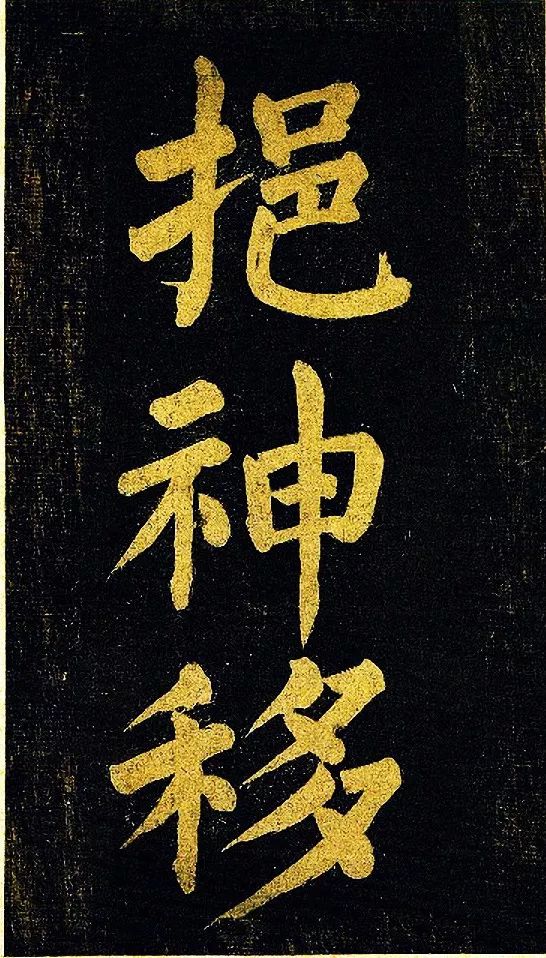 挹神移